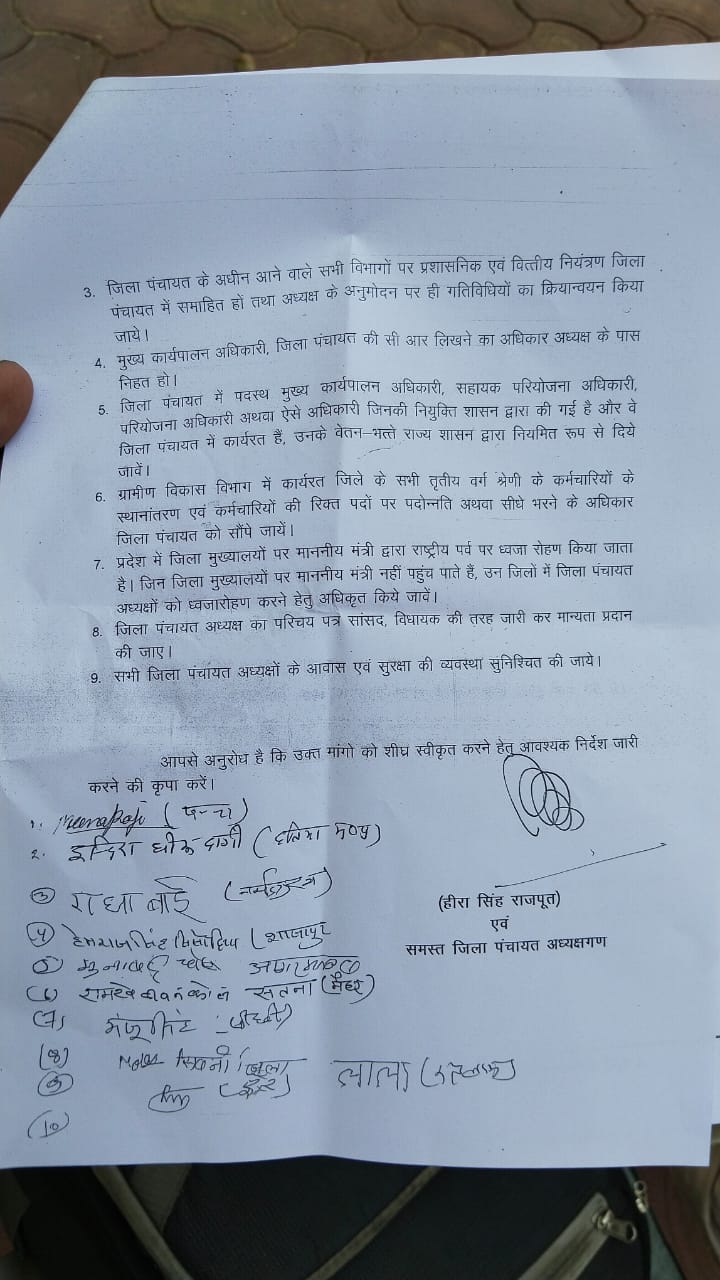 3. जिला पंचायत के अधीन आने वाले सभी विभागों पर प्रशासनिक एवं वित्तीय नियंत्रण जिला
पंचायत में समाहित हों तथा अध्यक्ष के अनुमोदन पर ही गतिविधियों का क्रियान्वयन किया
जाये।
4. मुख्य कार्यपालन अधिकारी, जिला पंचायत की सी आर लिखने का अधिकार अध्यक्ष के पास
निहत हो।
5. जिला पंचायत में पदस्थ मुख्य कार्यपालन अधिकारी, सहायक परियोजना अधिकारी,
परियोजना अधिकारी अथवा ऐसे अधिकारी जिनकी नियुक्ति शासन द्वारा की गई है और वे
जिला पंचायत में कार्यरत हैं, उनके वेतन–भत्ते राज्य शासन द्वारा नियमित रूप से दिये
जावें।
6. ग्रामीण विकास विभाग में कार्यरत जिले के सभी तृतीय वर्ग श्रेणी के कर्मचारियों के
स्थानांतरण एवं कर्मचारियों की रिक्त पदों पर पदोन्नति अथवा सीधे भरने के अधिकार
जिला पंचायत को सौंपे जायें।
7. प्रदेश में जिला मुख्यालयों पर माननीय मंत्री द्वारा राष्ट्रीय पर्व पर ध्वजा रोहण किया जाता
है। जिन जिला मुख्यालयों पर माननीय मंत्री नहीं पहुंच पाते हैं, उन जिलों में जिला पंचायत
अध्यक्षों को ध्वजारोहण करने हेतु अधिकृत किये जावें।
8. जिला पंचायत अध्यक्ष का परिचय पत्र सांसद, विधायक की तरह जारी कर मान्यता प्रदान
की जाए।
9. सभी जिला पंचायत अध्यक्षों के आवास एवं सुरक्षा की व्यवस्था सुनिश्चित की जाये।
आपसे अनुरोध है कि उक्त मांगो को शीघ्र स्वीकृत करने हेतु आवश्यक निर्देश जारी
करने की कृपा करें।
1.
2. इन्दिरा दांगी
(3) राधा बाई
(4) (शाजापुर
5)
(6) सतना (मैहर)
(7)
(8)
(9) लाला
(10)
(हीरा सिंह राजपूत)
एवं
समस्त जिला पंचायत अध्यक्षगण